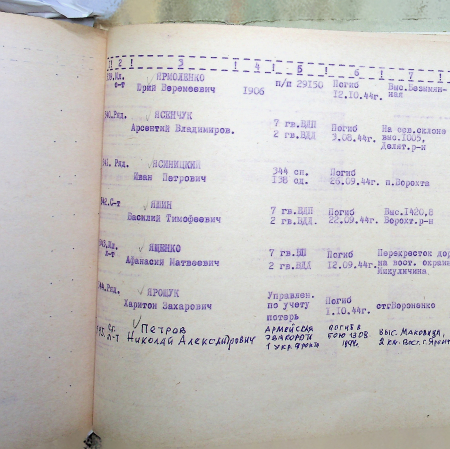 1 2 ! 3 ! 4 ! 5 ! 6 ! 7 !
139.Мл. ЯРМОЛЕНКО
с-т Юрий Веремеевич 1906 п/п 29150 Погиб Выс.Безимян-
12.10.44г. ная
140.Ряд. ЯСЕНЧУК
Арсентий Владимиров. 7 гв.ВДП Погиб На сев.склоне
2 гв.ВДД 3.08.44г. выс.1005,
Делят.р-н
141. Ряд. ЯСЯНИЦКИЙ 344 сп. Погиб
Иван Петрович 138 сд. 26.09.44г. п.Ворохта
142.С-т ЯШИН 7 гв.ВДП Погиб Выс.1420,8
Василий Тимофеевич 2 гв.ВДД. 22.09.44г. Ворохт.р-н
143.Мл. ЯЩЕНКО 7 гв.ВП Погиб Перекресток дор
л-т Афанасий Матвеевич 2 гв.ВДД 12.09.44г. на вост. окраин
Микуличина
144.Ряд. ЯРОЩУК Управлен.
Харитон Захарович по учету Погиб
потерь 1.10.44г. ст.Вороненко
145. Ст. Петров Армейская погиб в выс. Маковица,
л-т Николай Александрович 1 Укр. фронт 2 км. вост. г.